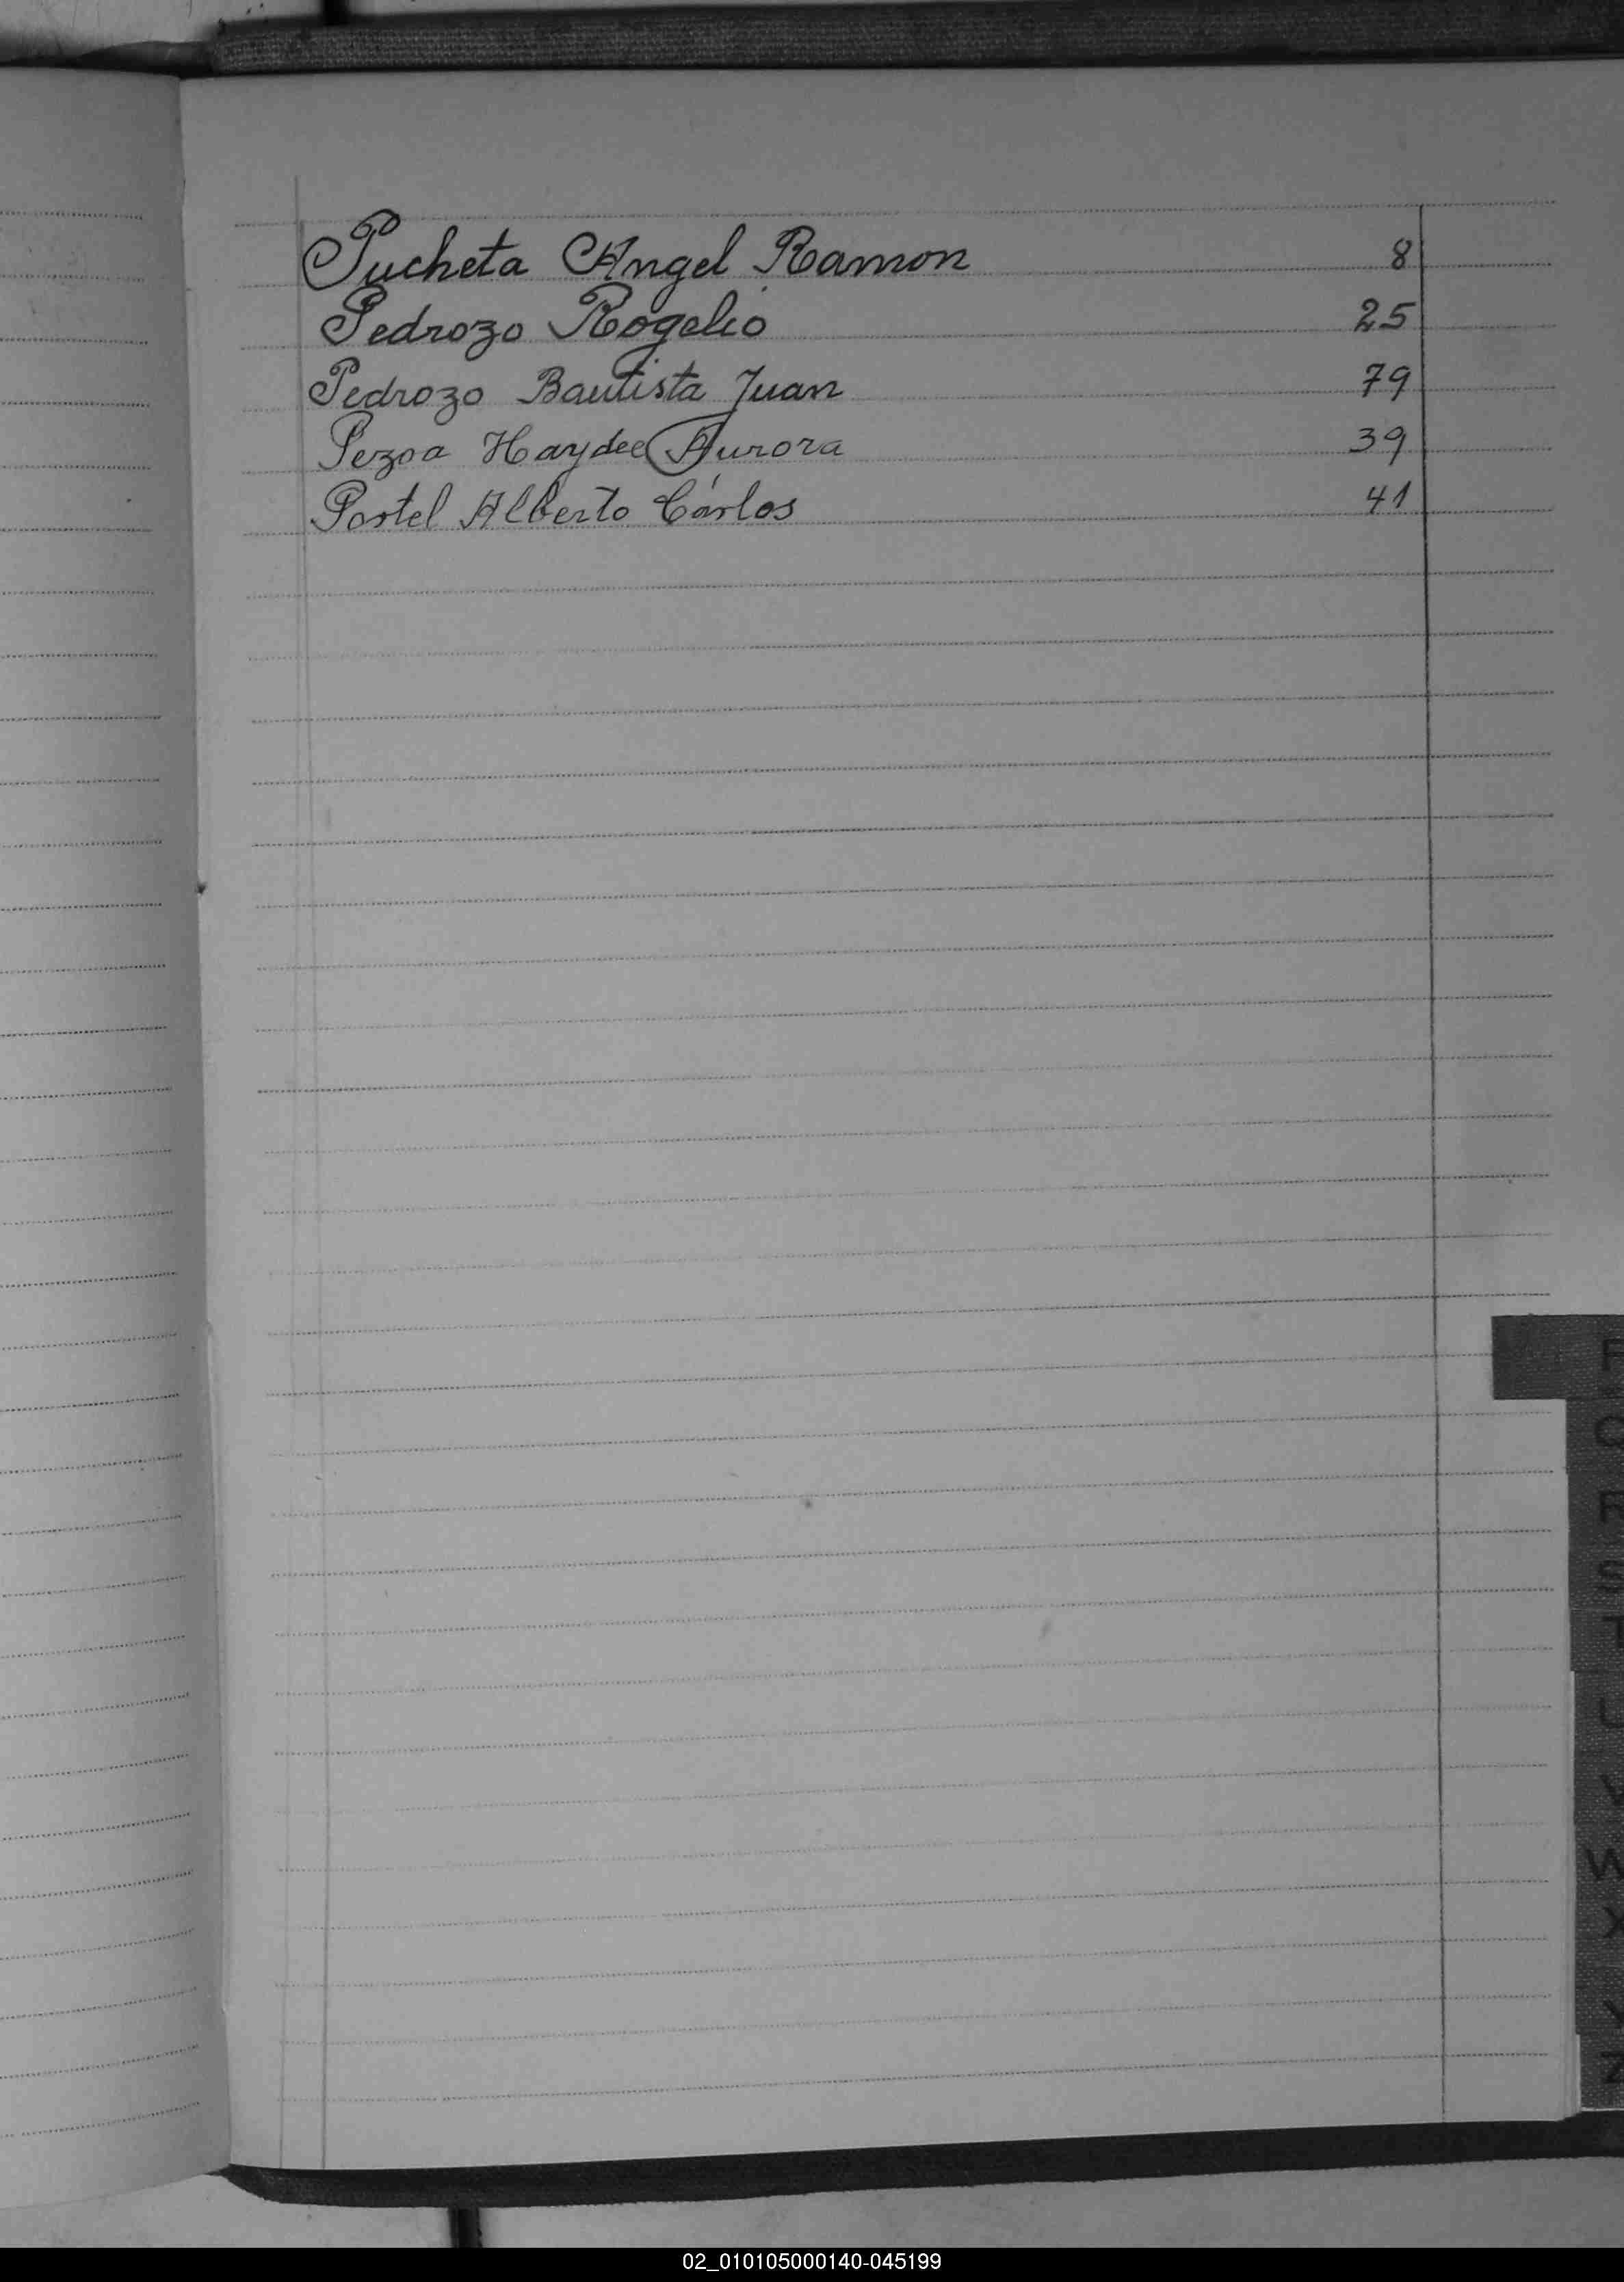 Pucheta Angel Ramon 8
Pedrozo Rogelio 25
Pedrozo Bautista Juan 79
Pezoa Haydee Aurora 39
Portel Alberto Cárlos 41
P
Q
R
S
T
U
V
W
X
Y
Z
02_010105000140-045199